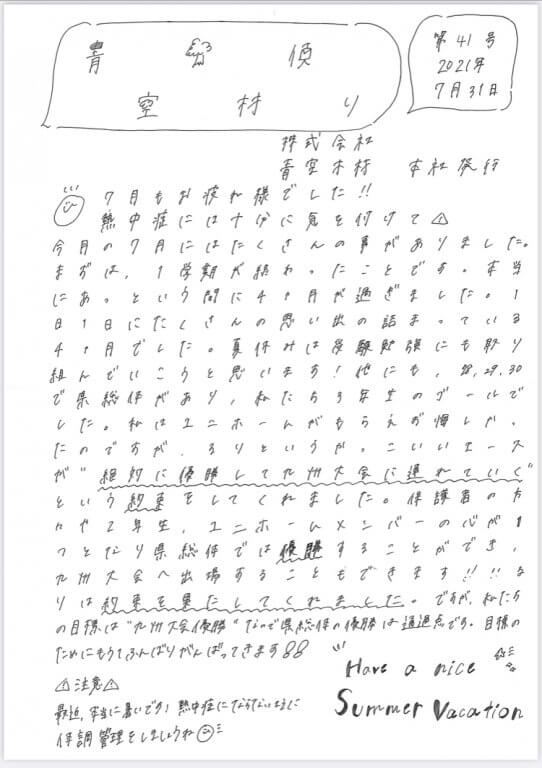 青空便り
青空材
第41号
2021年
7月31日
株式会社
青空木材 本社発行
7月もお疲れ様でした!!
熱中症には十分に気を付けて⚠
今月の7月にはたくさんの事がありました。
まずは、1学期が終わったことです。本当
にあっという間に4ヶ月が過ぎました。1
日1日にたくさんの思い出の詰まっている
4ヶ月でした。夏休みは受験勉強にも取り
組んでいこうと思います!他にも、28,29,30
で県総体があり、私たち3年生のゴールで
した。私はユニホームがもらえず悔しかっ
たのですが、うりというか、こいいエース
が"絶対に優勝して九州大会に連れていく"
という約束をしてくれました。保護者の方
々や2年生、ユニホームメンバーの心が1
つとなり県総体では優勝することができ、
九州大会へ出場することもできます!!!な
りは約束を果たしてくれました。ですが、私たち
の目標は"九州大会優勝"なので県総体の優勝は通過点です。目標の
ためにもう1ふんばりがんばってきます
⚠注意⚠
最近、本当に暑いです!熱中症にならないように
体調管理をしましょうね
Have a nice
Summer Vacation